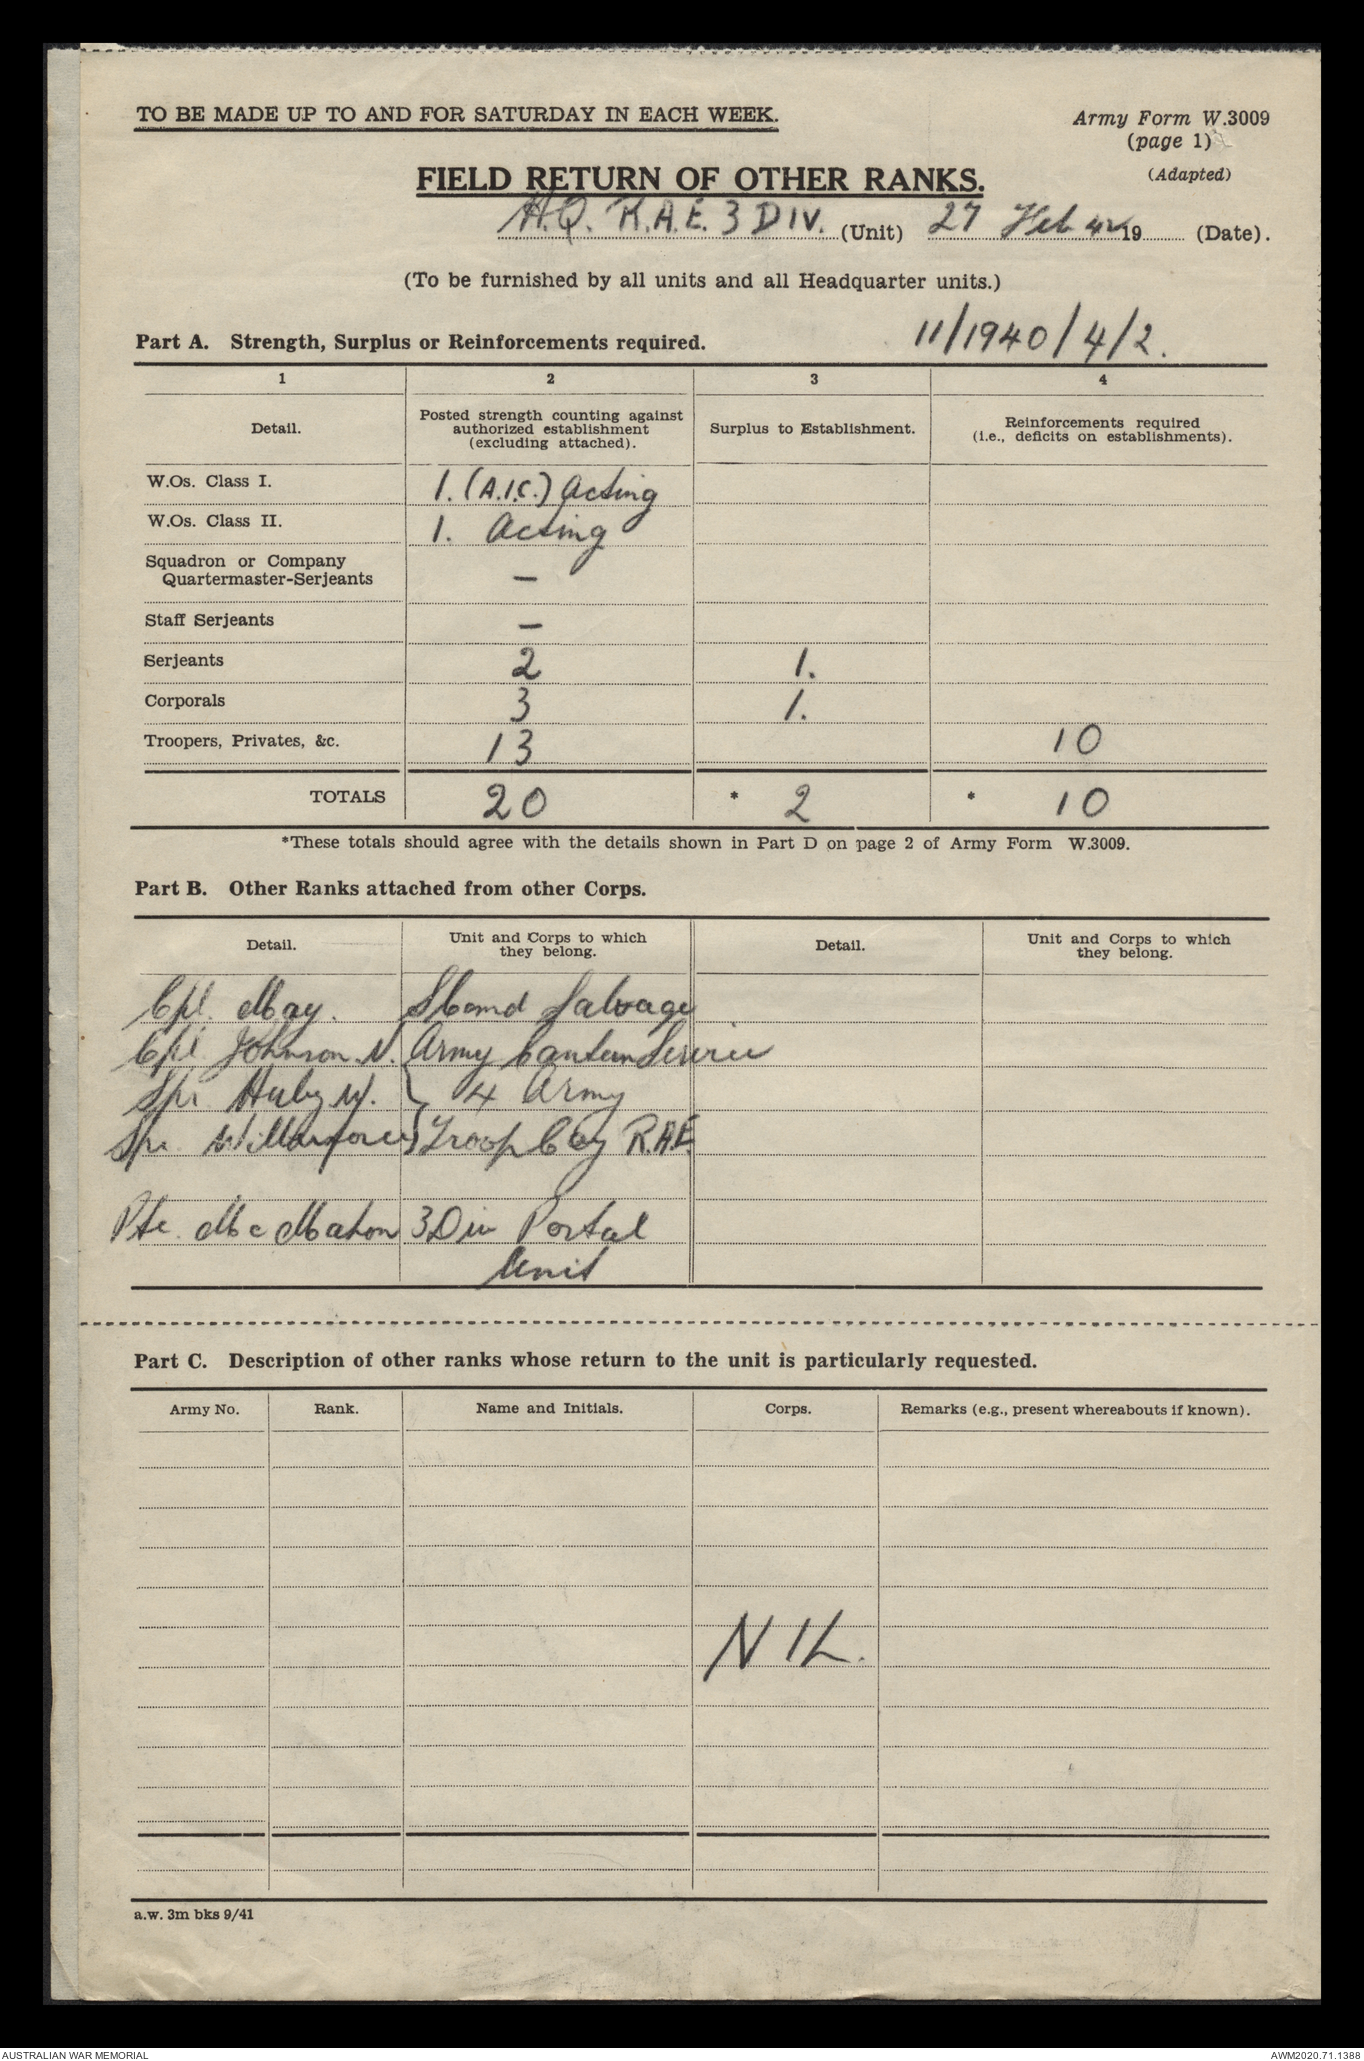 TO BE MADE UP TO AND FOR SATURDAY IN EACH WEEK.
Army Form W.3009
(page 1)
(Adapted)
FIELD RETURN OF OTHER RANKS.
H.Q. R.A.E. 3 DIV. (Unit) 27 Feb 42 19 (Date).
(To be furnished by all units and all Headquarter units.)
11/1940/4/2.
Part A. Strength, Surplus or Reinforcements required.
1 2 3 4
Detail. Posted strength counting against authorized establishment (excluding attached). Surplus to Establishment. Reinforcements required (i.e., deficits on establishments).
W.Os. Class I. 1. (A.I.C.) Acting
W.Os. Class II. 1. Acting
Squadron or Company
Quartermaster-Serjeants —
Staff Serjeants —
Serjeants 2 1.
Corporals 3 1.
Troopers, Privates, &c. 13 10
TOTALS 20 * 2 * 10
*These totals should agree with the details shown in Part D on page 2 of Army Form W.3009.
Part B. Other Ranks attached from other Corps.
Detail. Unit and Corps to which they belong. Detail. Unit and Corps to which they belong.
Cpl. May. Salvage
Cpl Johnson. N. Army Canteen Service
Spr W. } 4 Army
Spr. } Troop Coy R.A.E.
Pte. McMahon 3 Div Postal
Unit
Part C. Description of other ranks whose return to the unit is particularly requested.
Army No. Rank. Name and Initials. Corps. Remarks (e.g., present whereabouts if known).
NIL.
a.w. 3m bks 9/41
AUSTRALIAN WAR MEMORIAL
AWM2020.71.1388